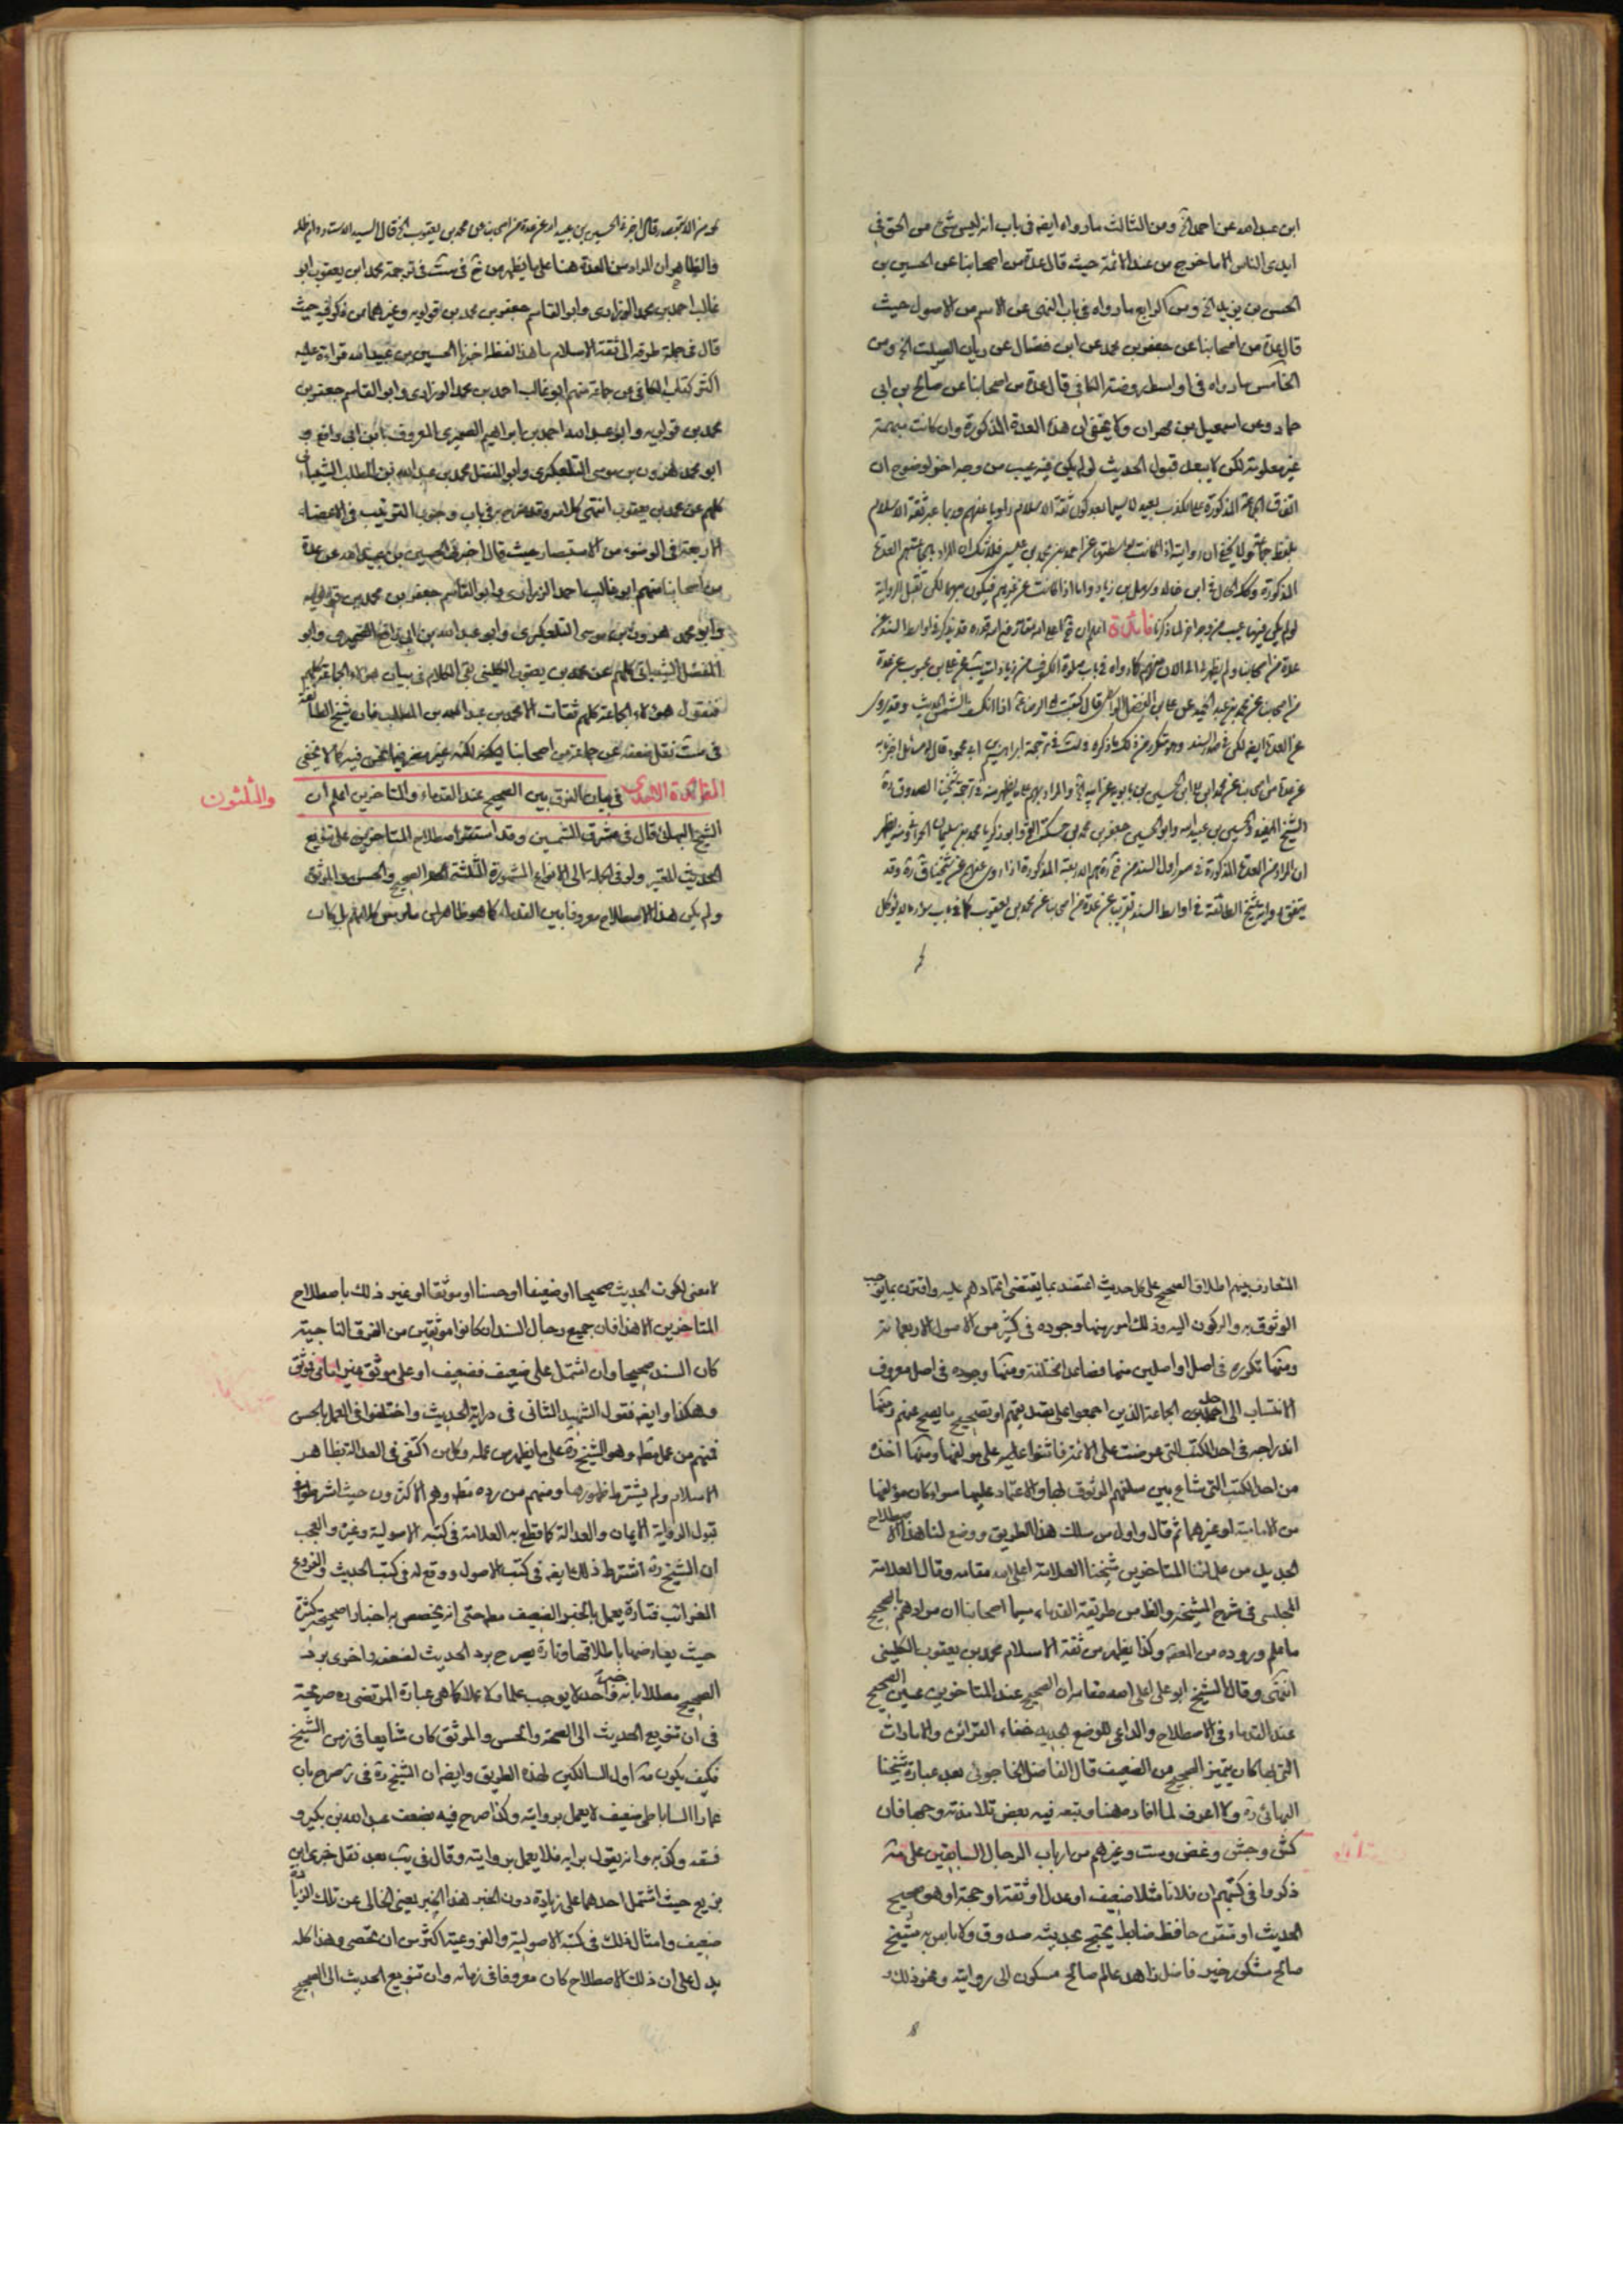 ابن عبد الله عن احمد الخ ومن الثالث ما رواه ايضه فى باب انه ليس شئ من الحق فى
ايدى الناس الا ما خرج من عند الائمة حيث قال عدة من اصحابنا عن الحسين بن
الحسن بن يزيد الخ ومن الرابع ما رواه فى باب النهى عن الاسم من الاصول حيث
قال عدة من اصحابنا عن جعفر بن محمد عن ابن فضال عن ريان الصلت الخ ومن
الخامس ما رواه فى اواسط روضة الكافى قال عدة من اصحابنا عن صالح بن ابى
حماد وعن اسمعيل بن مهران ولا يخفى ان هذه العدة المذكورة وان كانت مبهمة
غير معلومة لكن لا يبعد قبول الحديث لو لم يكن فيه عيب من وجه اخر لوضوح ان
اتفاق الجماعة المذكورة على الكذب بعيد لا سيما بعد كون ثقة الاسلام راويا عنهم وربما عبر ثقة الاسلام
بلفظ جماعة
المذكورة وكذا الحال فى ابن خالد وسهل بن زياد واما اذا كانت عن غيرهم فيكون مبهما لكن تقبل الرواية
لو لم يكن فيها عيب من وجه اخر لما ذكرنا فائدة اعلم ان
عدة من اصحابنا
من اصحابنا عن محمد بن عبد الحميد عن على بن الفضل الواسطى قال كتبت الى الرضا ع اذا انكسف الشمس الحديث وقد يروى
عن العدة
الشيخ المفيد والحسين بن عبيد الله وابو الحسين جعفر بن محمد بن حسكة القمى وابو زكريا محمد بن سليمان الحرانى ومنه يظهر
ان المراد من العدة المذكورة فى صدر اول السند
يتفق رواية شيخ الطائفة فى اواسط السند عن عدة من اصحابنا عن محمد بن يعقوب كما فى باب
من الاستبصار قال اخبرنى الحسين بن عبيد الله عن عدة من اصحابنا عن محمد بن يعقوب الخ قال السيد الاستاد دام ظله
والظاهر ان المراد من العدة هنا على ما يظهر من خ فى ست فى ترجمة محمد ابن يعقوب ابو
غالب احمد بن محمد الزرارى وابو القاسم جعفر بن محمد بن قولويه وغيرهما من ذكر فيه حيث
قال فى جملة طرقه الى ثقة الاسلام ما هذا لفظه اخبرنا الحسين بن عبيد الله قراءة عليه
اكثر كتاب الكافى عن جماعة منهم ابو غالب احمد بن محمد الزرارى وابو القاسم جعفر بن
محمد بن قولويه وابو عبد الله احمد بن ابراهيم الصيمرى المعروف بابن ابى رافع و
ابو محمد هرون بن موسى التلعكبرى وابو المفضل محمد بن عبد الله بن المطلب الشيبانى
كلهم عن محمد بن يعقوب انتهى كلامه وقد صرح به فى باب وجوب الترتيب فى الاعضاء
الاربعة فى الوضوء من الاستبصار حيث قال اخبرنى الحسين بن عبيد الله عن عدة
من اصحابنا منهم ابو غالب احمد الزرارى وابو القاسم جعفر بن محمد بن قولويه
وابو محمد هرون بن موسى التلعكبرى وابو عبد الله بن ابى رافع الصيمرى وابو
المفضل الشيبانى كلهم عن محمد بن يعقوب الكلينى بقى الكلام فى بيان هؤلاء الجماعة كلهم
فنقول هؤلاء الجماعة كلهم ثقات الا محمد بن عبد الله بن المطلب فان شيخ الطائفة
فى ست نقل ضعفه عن جماعة من اصحابنا لكنه غير مضر فيما نحن فيه كما لا يخفى
الفائدة الاحدى فى بيان الفرق بين الصحيح عند القدماء والمتاخرين اعلم ان
والثلثون
الشيخ البهائى قال فى مشرق الشمسين وقد استقر اصطلاح المتاخرين على تنويع
الحديث المعتبر ولو فى الجملة الى الانواع المشهورة الثلثة الصحيح والحسن والموثق
ولم يكن هذا الاصطلاح معروفا بين القدماء كما هو ظاهر لمن مارس كلامهم بل كان
المتعارف بينهم اطلاق الصحيح على كل حديث اعتضد بما يقتضى اعتمادهم عليه واقترن بما يوجب
الوثوق به والركون اليه وذلك امور منها وجوده فى كثير من الاصول الاربعمائة
ومنها تكرره فى اصل او اصلين منها فصاعدا مختلفة ومنها وجوده فى اصل معروف
الانتساب الى احد من الجماعة الذين اجمعوا على تصديقهم او تصحيح ما يصح عنهم ومنها
اندراجه فى احد الكتب التى عرضت على الائمة فاثنوا عليهم على مؤلفيها ومنها اخذه
من احد الكتب التى شاع بين سلفهم الوثوق بها والاعتماد عليها سواء كان مؤلفها
من الامامية او غيرهما ثم قال واول من سلك هذا الطريق ووضع لنا هذا الاصطلاح
الجديد من علمائنا المتاخرين شيخنا العلامة اعلى الله مقامه وقال العلامة
المجلسى فى شرح المشيخة والظ من طريقة القدماء سيما اصحابنا ان مرادهم بالصحيح
ما علم وروده من المعصوم وكذا يظهر من ثقة الاسلام محمد بن يعقوب الكلينى
انتهى وقال الشيخ ابو على اعلى الله مقامه ان الصحيح عند المتاخرين غير الصحيح
عند القدماء فى الاصطلاح والداعى للوضع الجديد خفاء القرائن والامارات
التى بها كان يتميز الصحيح من الضعيف قال الفاضل الخاجوئى بعد عبارة شيخنا
البهائى ره ولا اعرف لما افاده هنا وتبعه فيه بعض تلامذته وجها فان
كش وجش وغض وست وغيرهم من ارباب الرجال السابقين على
ذكروا فى كتبهم ان فلانا مثلا ضعيف او عدل او ثقة او حجة او هو صحيح
الحديث او متقن حافظ ضابط يحتج بحديثه صدوق ولا باس به شيخ
صالح مشكور خير فاضل زاهد عالم صالح مسكون الى روايته ونحو ذلك و
لا معنى لكون الحديث صحيحا او ضعيفا او حسنا او موثقا او غير ذلك باصطلاح
المتاخرين الا هذا فان جميع رجال السند ان كانوا موثقين من الفرق الناجية
كان السند صحيحا وان اشتمل على ضعيف فضعيف او على موثق غير امامى فموثق
وهكذا وايضه فنقول الشهيد الثانى فى دراية الحديث واختلفوا فى العمل بالحسن
فمنهم من عمل به مطلقا وهو الشيخ ره على ما يظهر من عمله وكان اكتفى فى العدالة بظاهر
الاسلام ولم يشترط ظهورها ومنهم من رده مطلقا وهم الاكثرون حيث اشترطوا فى
قبول الرواية الايمان والعدالة كما قطع به العلامة فى كتبه الاصولية وغيره والعجب
ان الشيخ ره اشترط ذلك ايضه فى كتب الاصول ووقع له فى كتب الحديث والفروع
الغرائب فتارة يعمل بالخبر الضعيف مطلقا حتى انه يخصص به اخبارا صحيحة كثيرة
حيث يعارضها باطلاقها وتارة يصرح برد الحديث لضعفه واخرى برد
الصحيح معللا بانه خبر واحد لا يوجب علما ولا عملا كما هى عبارة المرتضى ره صريحة
فى ان تنويع الحديث الى الصحة والحسن والموثق كان شايعا فى زمن الشيخ
فكيف يكون مه اول السالكين لهذه الطريق وايضه ان الشيخ ره فى صرح بان
عمارا الساباطى ضعيف لا يعمل بروايته وكذا صرح فيه بضعف عبد الله بن بكير و
فسقه وكذبه وانه يقول برايه فلا يعمل بروايته وقال فى يب بعد نقل خبرى ابن
بزيع حيث اشتمل احدهما على زيادة دون الخبر هذا الخبر يعنى الخالى عن تلك الزيادة
ضعيف وامثال ذلك فى كتبه الاصولية والفروعية اكثر من ان تحصى وهذا كله
يدل على ان ذلك الاصطلاح كان معروفا فى زمانه وان تنويع الحديث الى الصحيح